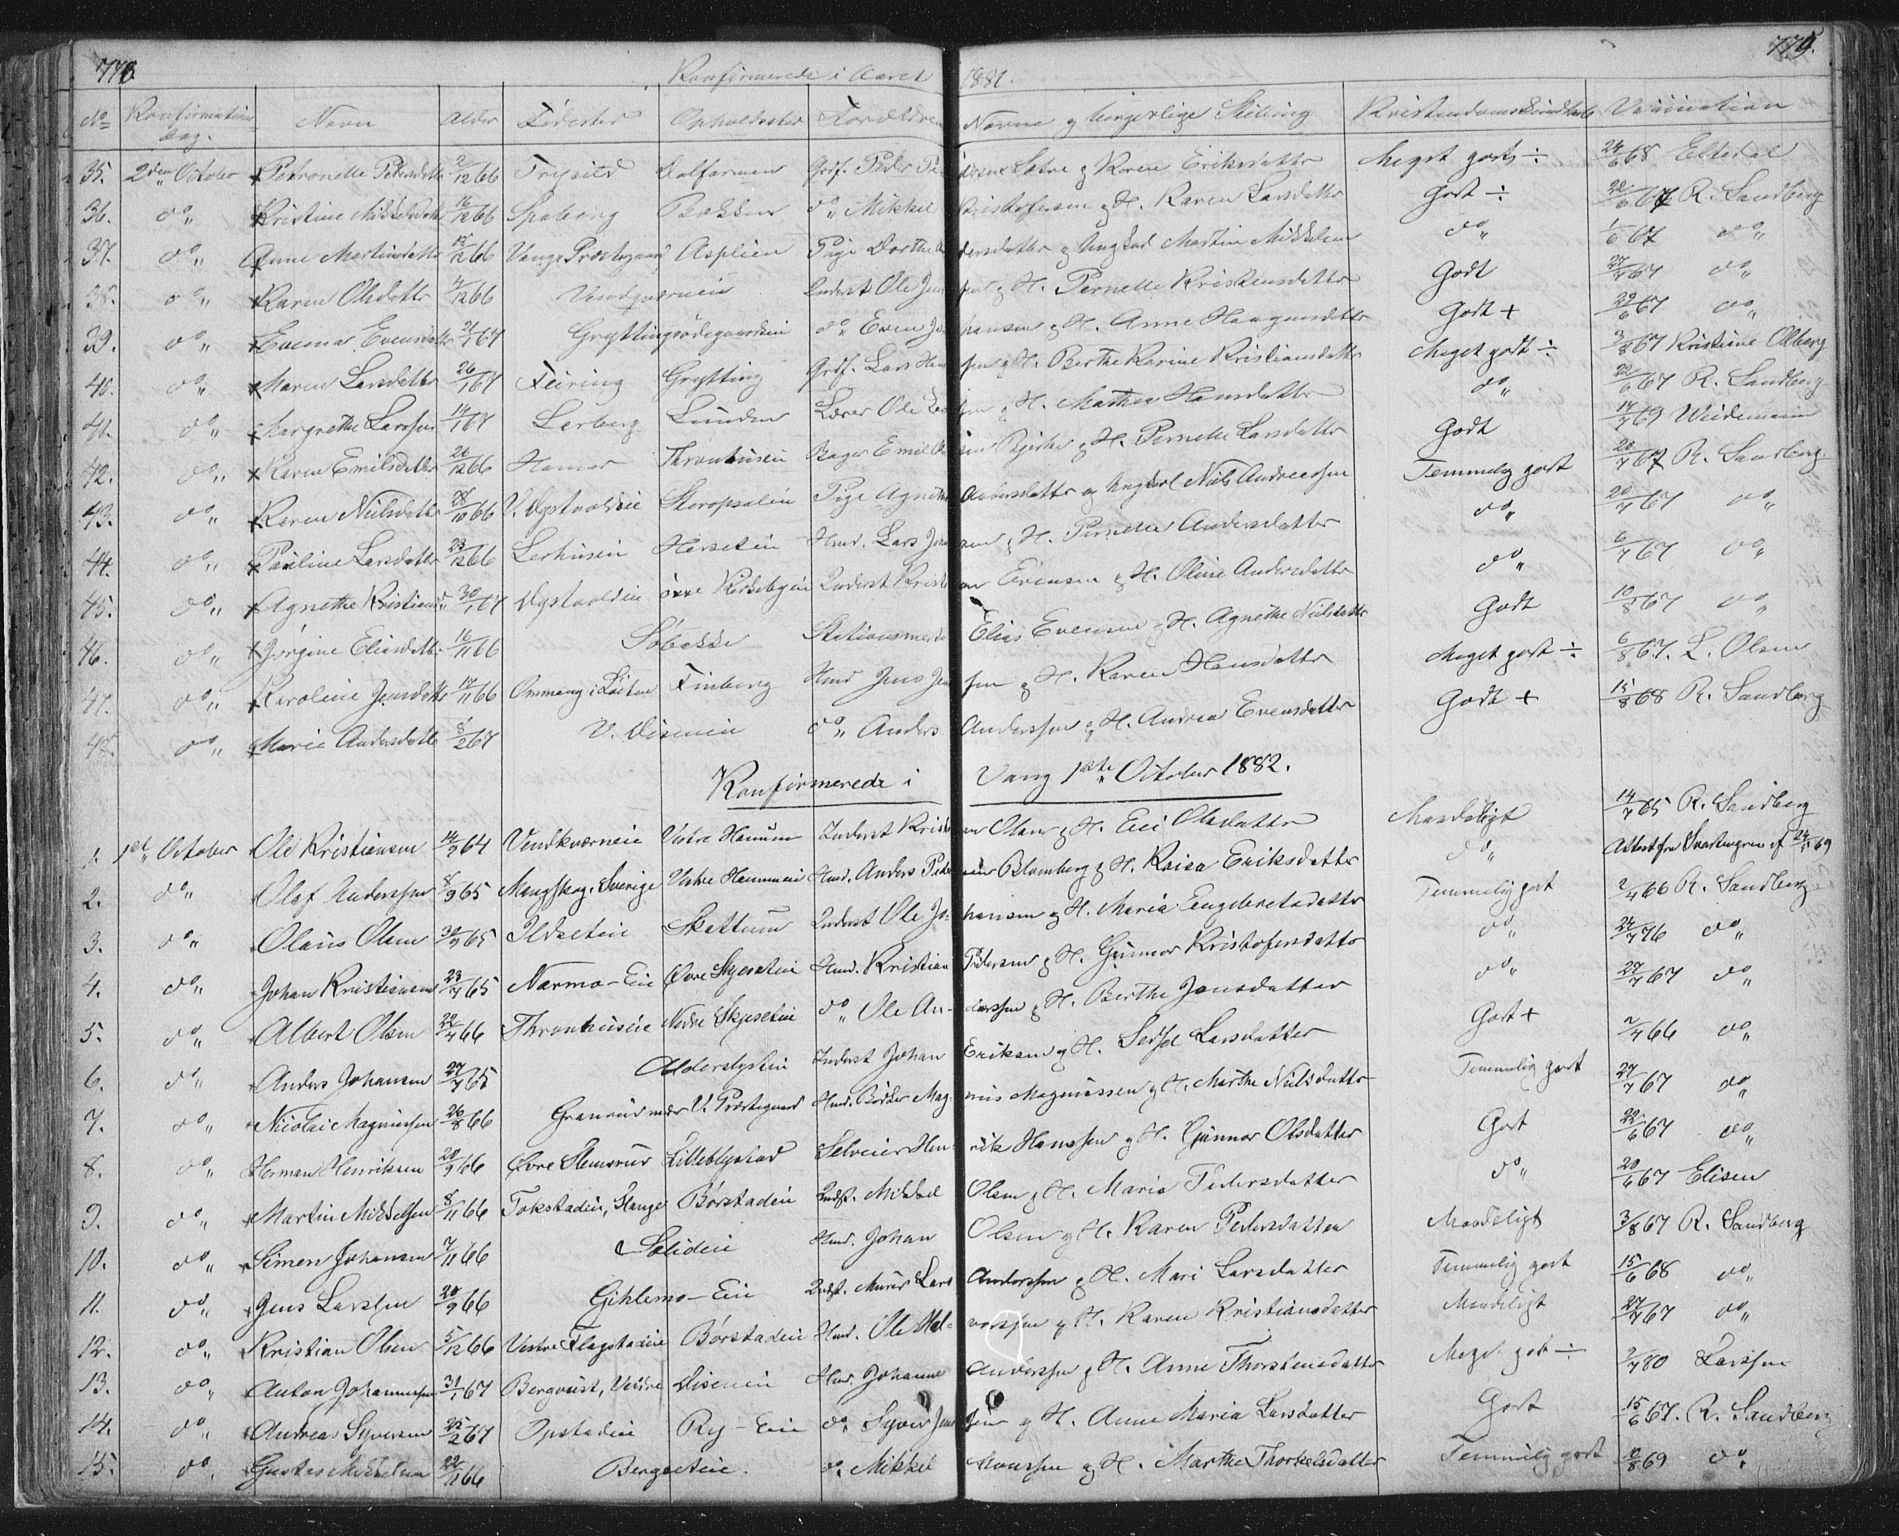 778. 779.
Konfirmerede i Aaret 1881.
No Konfirmations dag. Navn Alder Fødested Opholdssted Forældrenes Navne og borgerlige Stilling Kristendomskundskab Vaccination
35. 2den October Petronelle Pedersdatter 2/12 66 Trysild Dalfarmen Grdf. Peder Pedersen Sætre og Karen Eriksdatter Meget godt ÷ 24/6 68 Elledal
36. do Kristine Mikkelsdatter 16/12 66 Spaborg Bækken do Mikkel Kristofersen og H. Karen Larsdatter Godt ÷ 22/6 67 R. Sandberg
37. do Anne Martinsdatter 15/12 66 Vangs Præstegaard Asplien Pige Dorthe Andersdatter og Ungkarl Martin Mikkelsen do 1/6 67 do
38. do Karen Olsdatter 4/12 66 Vendqværneie Inderst Ole Jensen og H. Pernelle Kristensdatter Godt 27/7 67 do
39. do Evensdatter 21/1 67 Gryttingsødegaardseie do Even Johansen og H. Anne Haagensdatter Godt + 22/6 67 do
40. do Maren Larsdatter 26/1 67 Feiring Grytting Grdf. Lars Hansen og H. Berthe Karine Kristiansdatter Meget godt ÷ 3/8 67 Kristiane Olberg
41. do Margrethe Larssen 14/1 67 Lerberg Lunden Lærer Ole Larssen og H. Mathea Hansdatter do 22/6 67 R. Sandberg
42. do Karen Emilsdatter 26/12 66 Hamar Thronhuseie Bager Emil Bjerke og H. Pernelle Larsdatter Godt 14/7 69 Wiedemann
43. do Karen Nielsdatter 28/10 66 V. Dystvoldeie Pige Agnethe Andersdatter og Ungkarl Niels Andreassen Temmelig godt 20/7 67 R. Sandberg
44. do Pauline Larsdatter 23/12 66 Lerhuseie Herseteie Hmd. Lars Jonsen og H. Pernelle Andersdatter do 20/7 67 do
45. do Agnethe Kristiansd. 30/1 67 Dystvoldeie Inderst Kristian Evensen og H. Oline Andersdatter do 6/7 67 do
46. do Jørgine Eliasdatter 16/11 66 Søbakke Stationsmester Elias Evensen og H. Agnethe Nielsdatter Godt 10/8 67 do
47. do Karoline Jensdatter 17/11 66 Ommang i Løiten Finborg Hmd Jens Jensen og H. Karen Hansdatter Meget godt ÷ 6/8 67. L. Olsen
48. do Marie Andersdatter 8/2 67 V. Diseneie do Anders Anderssen og H. Andrea Evensdatter Godt + 15/8 68 R. Sandberg
Konfirmerede i Vang 1ste October 1882.
1. 1ste October Ole Kristiansen 14/9 64 Vendkværneie Vestre Hammen Inderst Kristian Olsen og H. Eli Olsdatter Maadeligt 14/7 65 R. Sandberg
2. do Olaf Anderssen 8/9 65 Mangskog, Sverige Vestre Hammeneie Hmd. Anders Pedersen Blomberg og H. Kaisa Eriksdatter do Attest fra Svartengren af 24/5 69
3. do Olaus Olsen 30/9 65 Ildseteie Skattum Inderst Ole Johansen og H. Maria Engebretsdatter Temmelig godt 2/7 66 R. Sandberg
4. do Johan Kristiansen 23/7 65 Narmo-Eie Øvre Skjeseteie Hmd. Kristian Pedersen og H. Gunnor Kristofersdatter do 24/7 76 do
5. do Albert Olsen 22/4 66 Thronhuseie Nedre Skjeseteie do Ole Anderssen og H. Berthe Jonsdatter do 27/7 67 do
6. do Anders Johansen 27/7 65 Alderslysteie Inderst Johan Eriksen og H. Sedsel Larsdatter Godt + 2/7 66 do
7. do Nicolai Magnussen 26/8 66 Granrud nær V. Præstegaard Hmd. Bødker Magnus Magnussen og H. Marthe Nielsdatter Temmelig godt 27/7 67 do
8. do Herman Henriksen 20/9 66 Øvre Stensrud Lilleblystad Selveier Henrik Hanssen og H. Gunnor Olsdatter Godt 22/6 67 do
9. do Martin Mikkelsen 8/11 66 Tokstadeie, Stange Børstadeie Indst. Mikkel Olsen og H. Maria Pedersdatter do 20/6 67 Elisen
10. do Simen Johansen 7/11 66 Solideie Hmd. Johan Olsen og H. Karen Pedersdatter Maadeligt 3/8 67 R. Sandberg
11. do Jens Larssen 20/9 66 Gihlemo-Eie Indst. Murer Lars Anderssen og H. Mari Larsdatter Temmelig godt 15/6 68 do
12. do Kristian Olsen 5/12 66 Vestre Flagstadeie Børstadeie Hmd. Ole Halvorssen og H. Karen Kristiansdatter Maadeligt 27/7 67 do
13. do Anton Johannessen 31/1 67 Bergqvist, Vestre Diseneie Hmd. Johannes Anderssen og H. Anne Thorstensdatter Meget godt ÷ 2/7 80 Larssen
14. do Andreas Syversen 25/2 67 Opstadeie Ry-Eie do Syver Jenssen og H. Anne Maria Larsdatter Godt 15/6 67. R. Sandberg
15. do Gustav Mikkelsen 22/11 66 Bergseteie. do Mikkel Monssen og H. Marthe Thorkelsdatter Temmelig godt 10/8 69 do